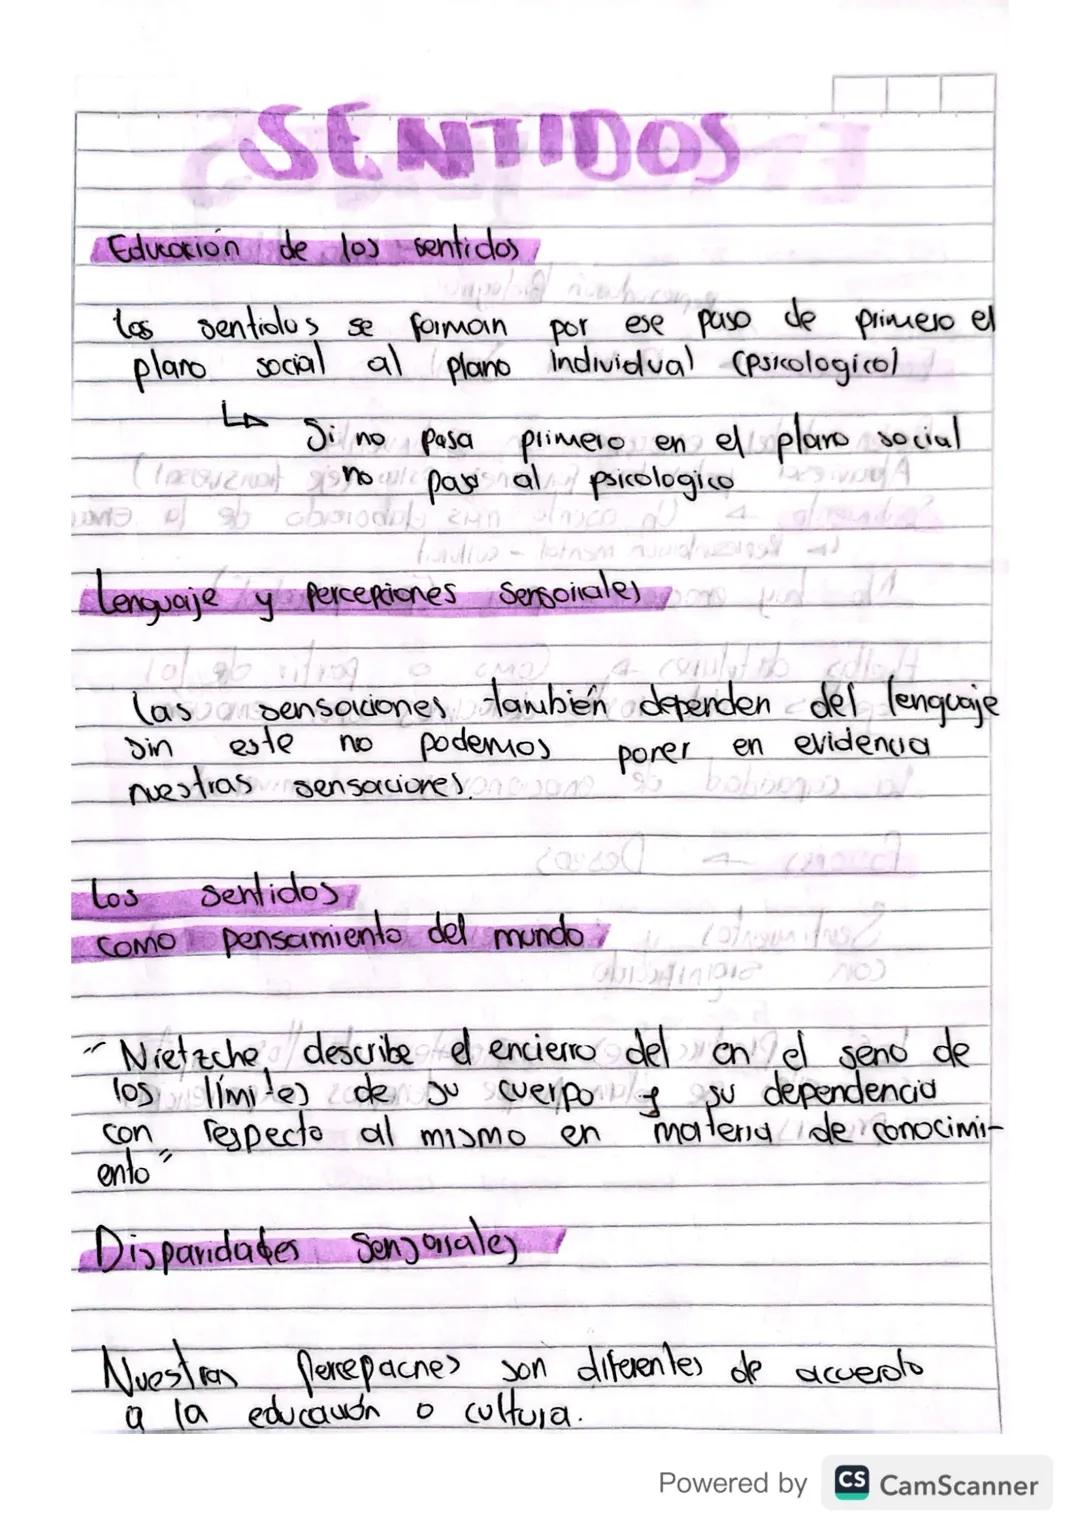 SENTIDOS
Educación de los sentidos
Los sentidos se forman por ese paso de primero el
plano social al plano individual (psicologico)
Si no pasa primero en el plano social
no pasa al psicologico
Lenguaje y percepciones sensoriales
Las sensaciones también dependen del lenguaje
sin este no podemos poner en evidencia
nuestras sensaciones.
Los sentidos
como pensamiento del mundo
"Nietzche, describe el encierro del en el seno de
los límites de su cuerpo y su dependencia
con respecto al mismo en materia de conocimi-
ento"
Disparidades Sensoriales
Nuestras percepciones son diferentes de acuerdo
a la educación o cultura.
Powered by CS CamScanner